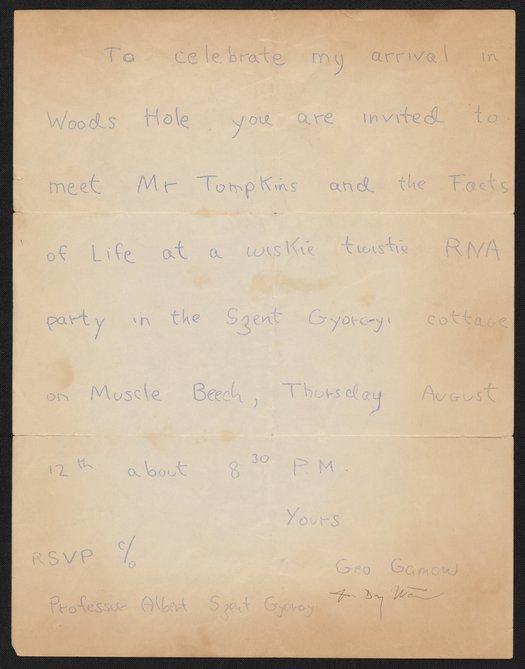 To celebrate my arrival in
Woods Hole you are invited to
meet Mr Tompkins and the Facts
of Life at a wiskie twistie RNA
party in the Szent Gyorgyi cottage
on Muscle Beech, Thursday August
12th about 8 30 P.M.
Yours
RSVP c/o
Geo Gamow
Professor Albert Szent Gyorgyi